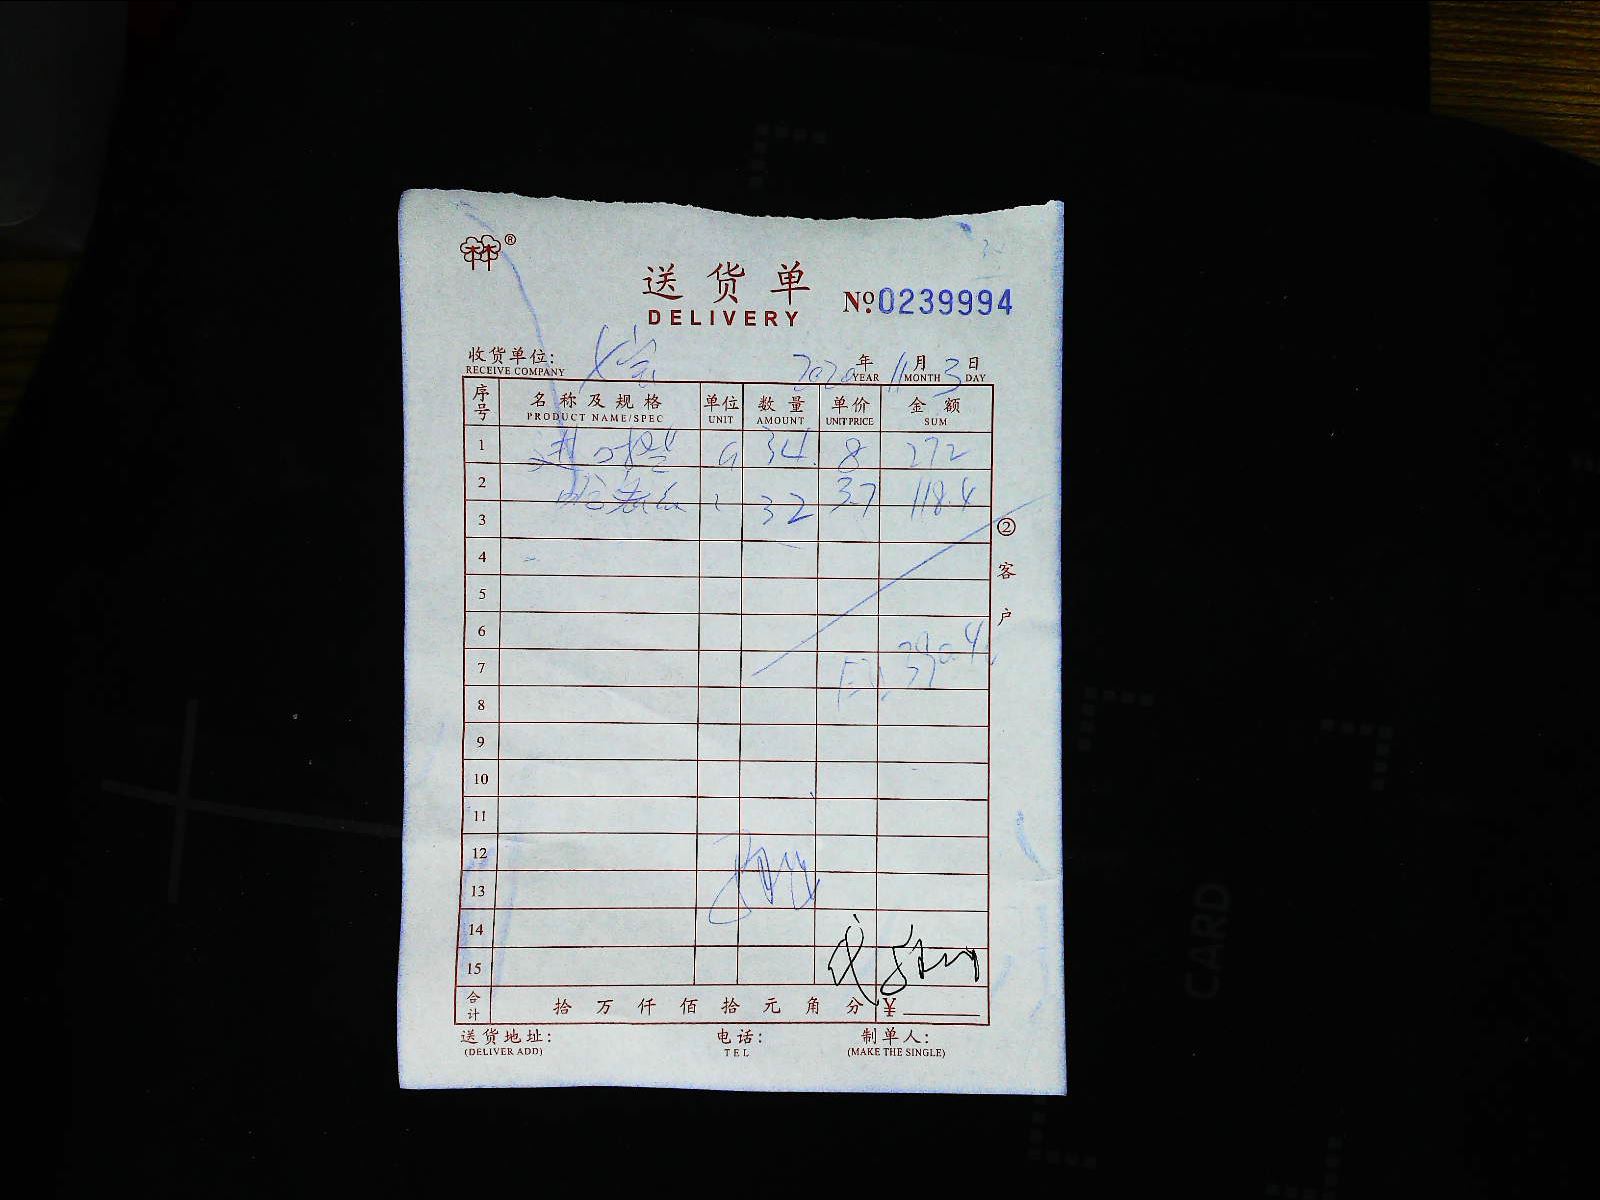 ®
送货单
DELIVERY
No.0239994
收货单位:
RECEIVE COMPANY
2020年 11月 3日
YEAR MONTH DAY
序号 名称及规格 单位 数量 单价 金额
PRODUCT NAME/SPEC UNIT AMOUNT UNIT PRICE SUM
1 进口 34 8 272
2 32 3.7 118.4
3
4
5
6
7 390.4
8
9
10
11
12
13
14
15
合计 拾 万 仟 佰 拾 元 角 分 ¥
② 客户
送货地址: 电话: 制单人:
(DELIVER ADD) TEL (MAKE THE SINGLE)
CARD